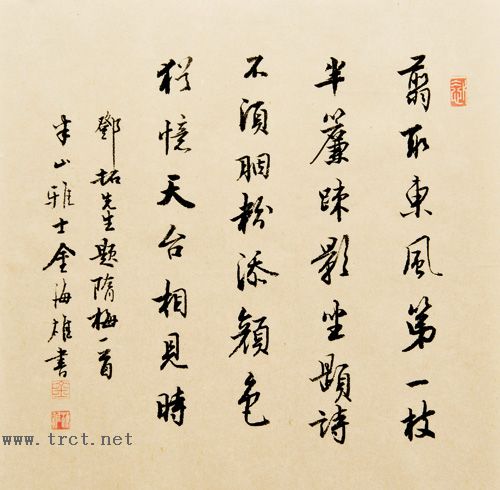 翦取東風第一枝
半簾疎影坐題詩
不須胭粉添顏色
猶憶天台相見時
鄧拓先生題隋梅一首
半山雅士金海雄書
www.trct.net